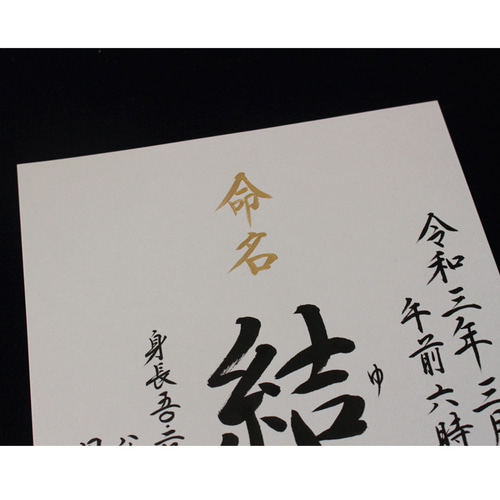 令和三年三月
午前六時
命名
結
ゆ
身長五・六